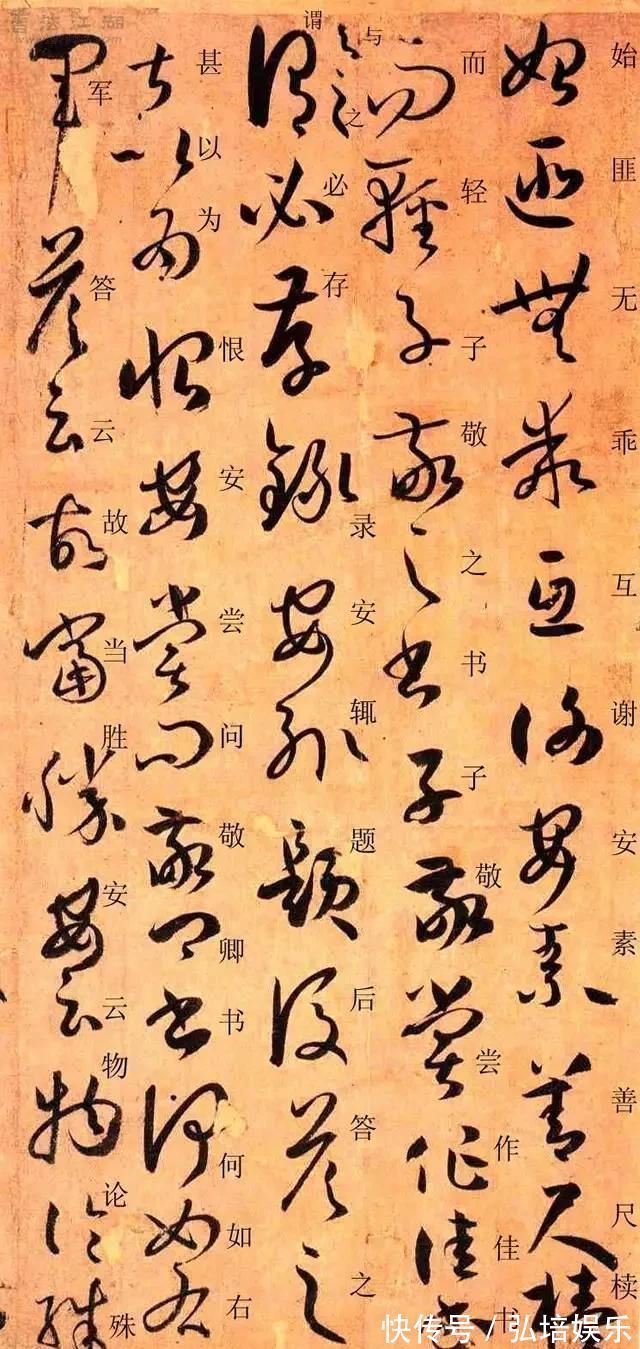 始匪无乖互谢安素善尺牍
而轻子敬之书子敬尝作佳书
与之谓必存录安辄题后答之
甚以为恨安尝问敬卿书何如右
军答云故当胜安云物论殊
书法江湖
快传号 / 弘培娱乐